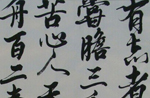 有志者
嘗膽三
苦心人
舟百二